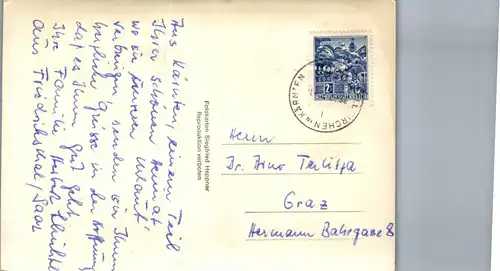 Aus Kärnten, einem Teil
Ihrer schönen Heimat
wo wir Urlaub
verbringen, senden wir Ihnen
herzliche Grüsse in der Hoffnung
daß es Ihnen gut geht.
Ihre Familie
aus Friedrichsthal/Saar
Fotokarton Siegfried Heppner
Reproduktion verboten
KIRCHEN IN KÄRNTEN
Herrn
Dr. Arno
Graz
Hermann Bahrgasse 8